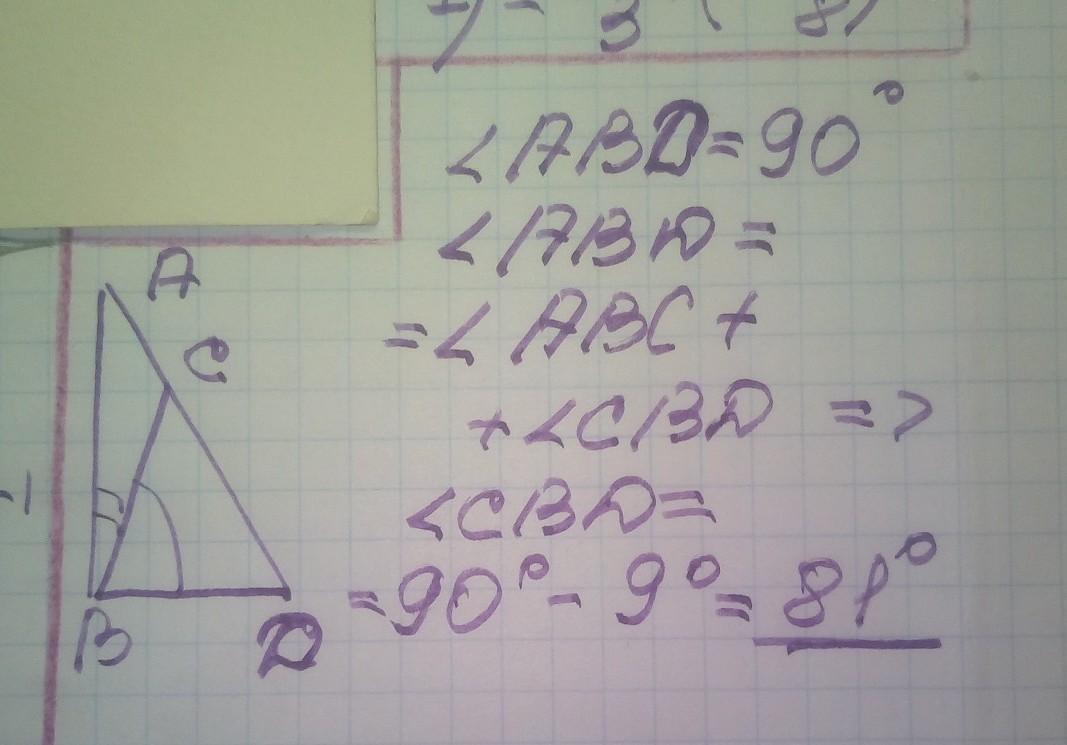 3 ( 8)
∠ABD=90°
∠ABD=
=∠ABC+
+∠CBD =>
∠CBD=
=90°-9°=81°
A
C
B
D
-1